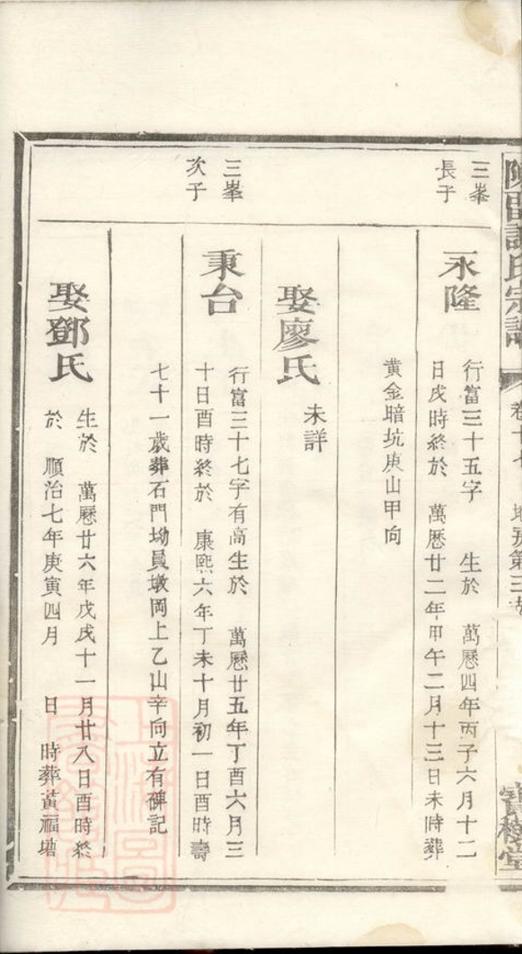 氏宗譜
三峯
長子
永隆
行富三十五字 生於 萬曆四年丙子六月十二
日戌時終於 萬曆廿二年甲午二月十三日未時葬
黃金暗坑庚山甲向
娶廖氏
未詳
三峯
次子
秉台
行富三十七字有高生於 萬曆廿五年丁酉六月三
十日酉時終於 康熙六年丁未十月初一日酉時壽
七十一歲葬石門坳員墩岡上乙山辛向立有碑記
娶鄧氏
生於 萬曆廿六年戊戌十一月廿八日酉時終
於 順治七年庚寅四月 日 時葬黃福塘